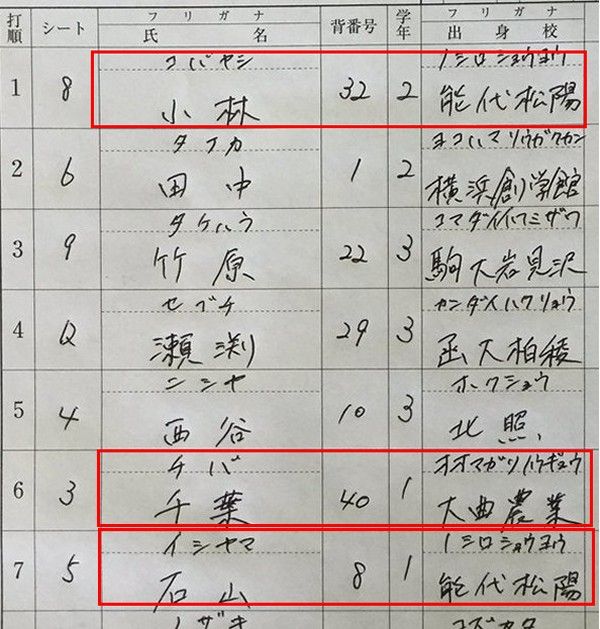 打順 シート フリガナ 氏名 背番号 学年 フリガナ 出身校
コバヤシ ノシロショウヨウ
1 8 小林 32 2 能代松陽
タナカ ヨコハマソウガクカン
2 6 田中 1 2 横浜創学館
タケハラ コマダイイワミザワ
3 9 竹原 22 3 駒大岩見沢
セブチ カンダイハクリョウ
4 D 瀬渕 29 3 函大柏稜
ニシヤ ホクショウ
5 4 西谷 10 3 北照
チバ オオマガリノウギョウ
6 3 千葉 40 1 大曲農業
イシヤマ ノシロショウヨウ
7 5 石山 8 1 能代松陽
ノザキ コズカタ